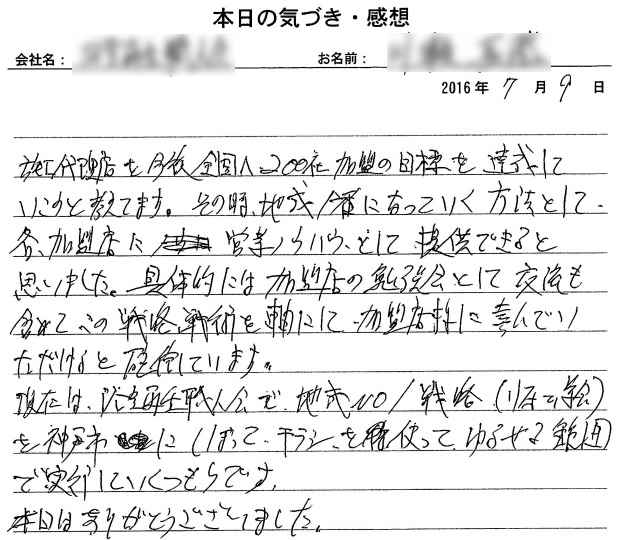 本日の気づき・感想
会社名： お名前：
2016年 7月 9日
施工代理店を今後全国へ200社加盟の目標を達成して
いこうと考えてます。その時、地域1番になっていく方法として、
各、加盟店に 営業ノウハウ、として提供できると
思いました。具体的には加盟店の勉強会として交流も
含めてこの戦略、戦術を軸にして、加盟店様に喜んでい
ただけると確信しています。
現在は、職人会で、地域NO1戦略
を神戸市にしぼって、チラシを使って、ゆるせる範囲
で実行していくつもりです。
本日はありがとうございました。